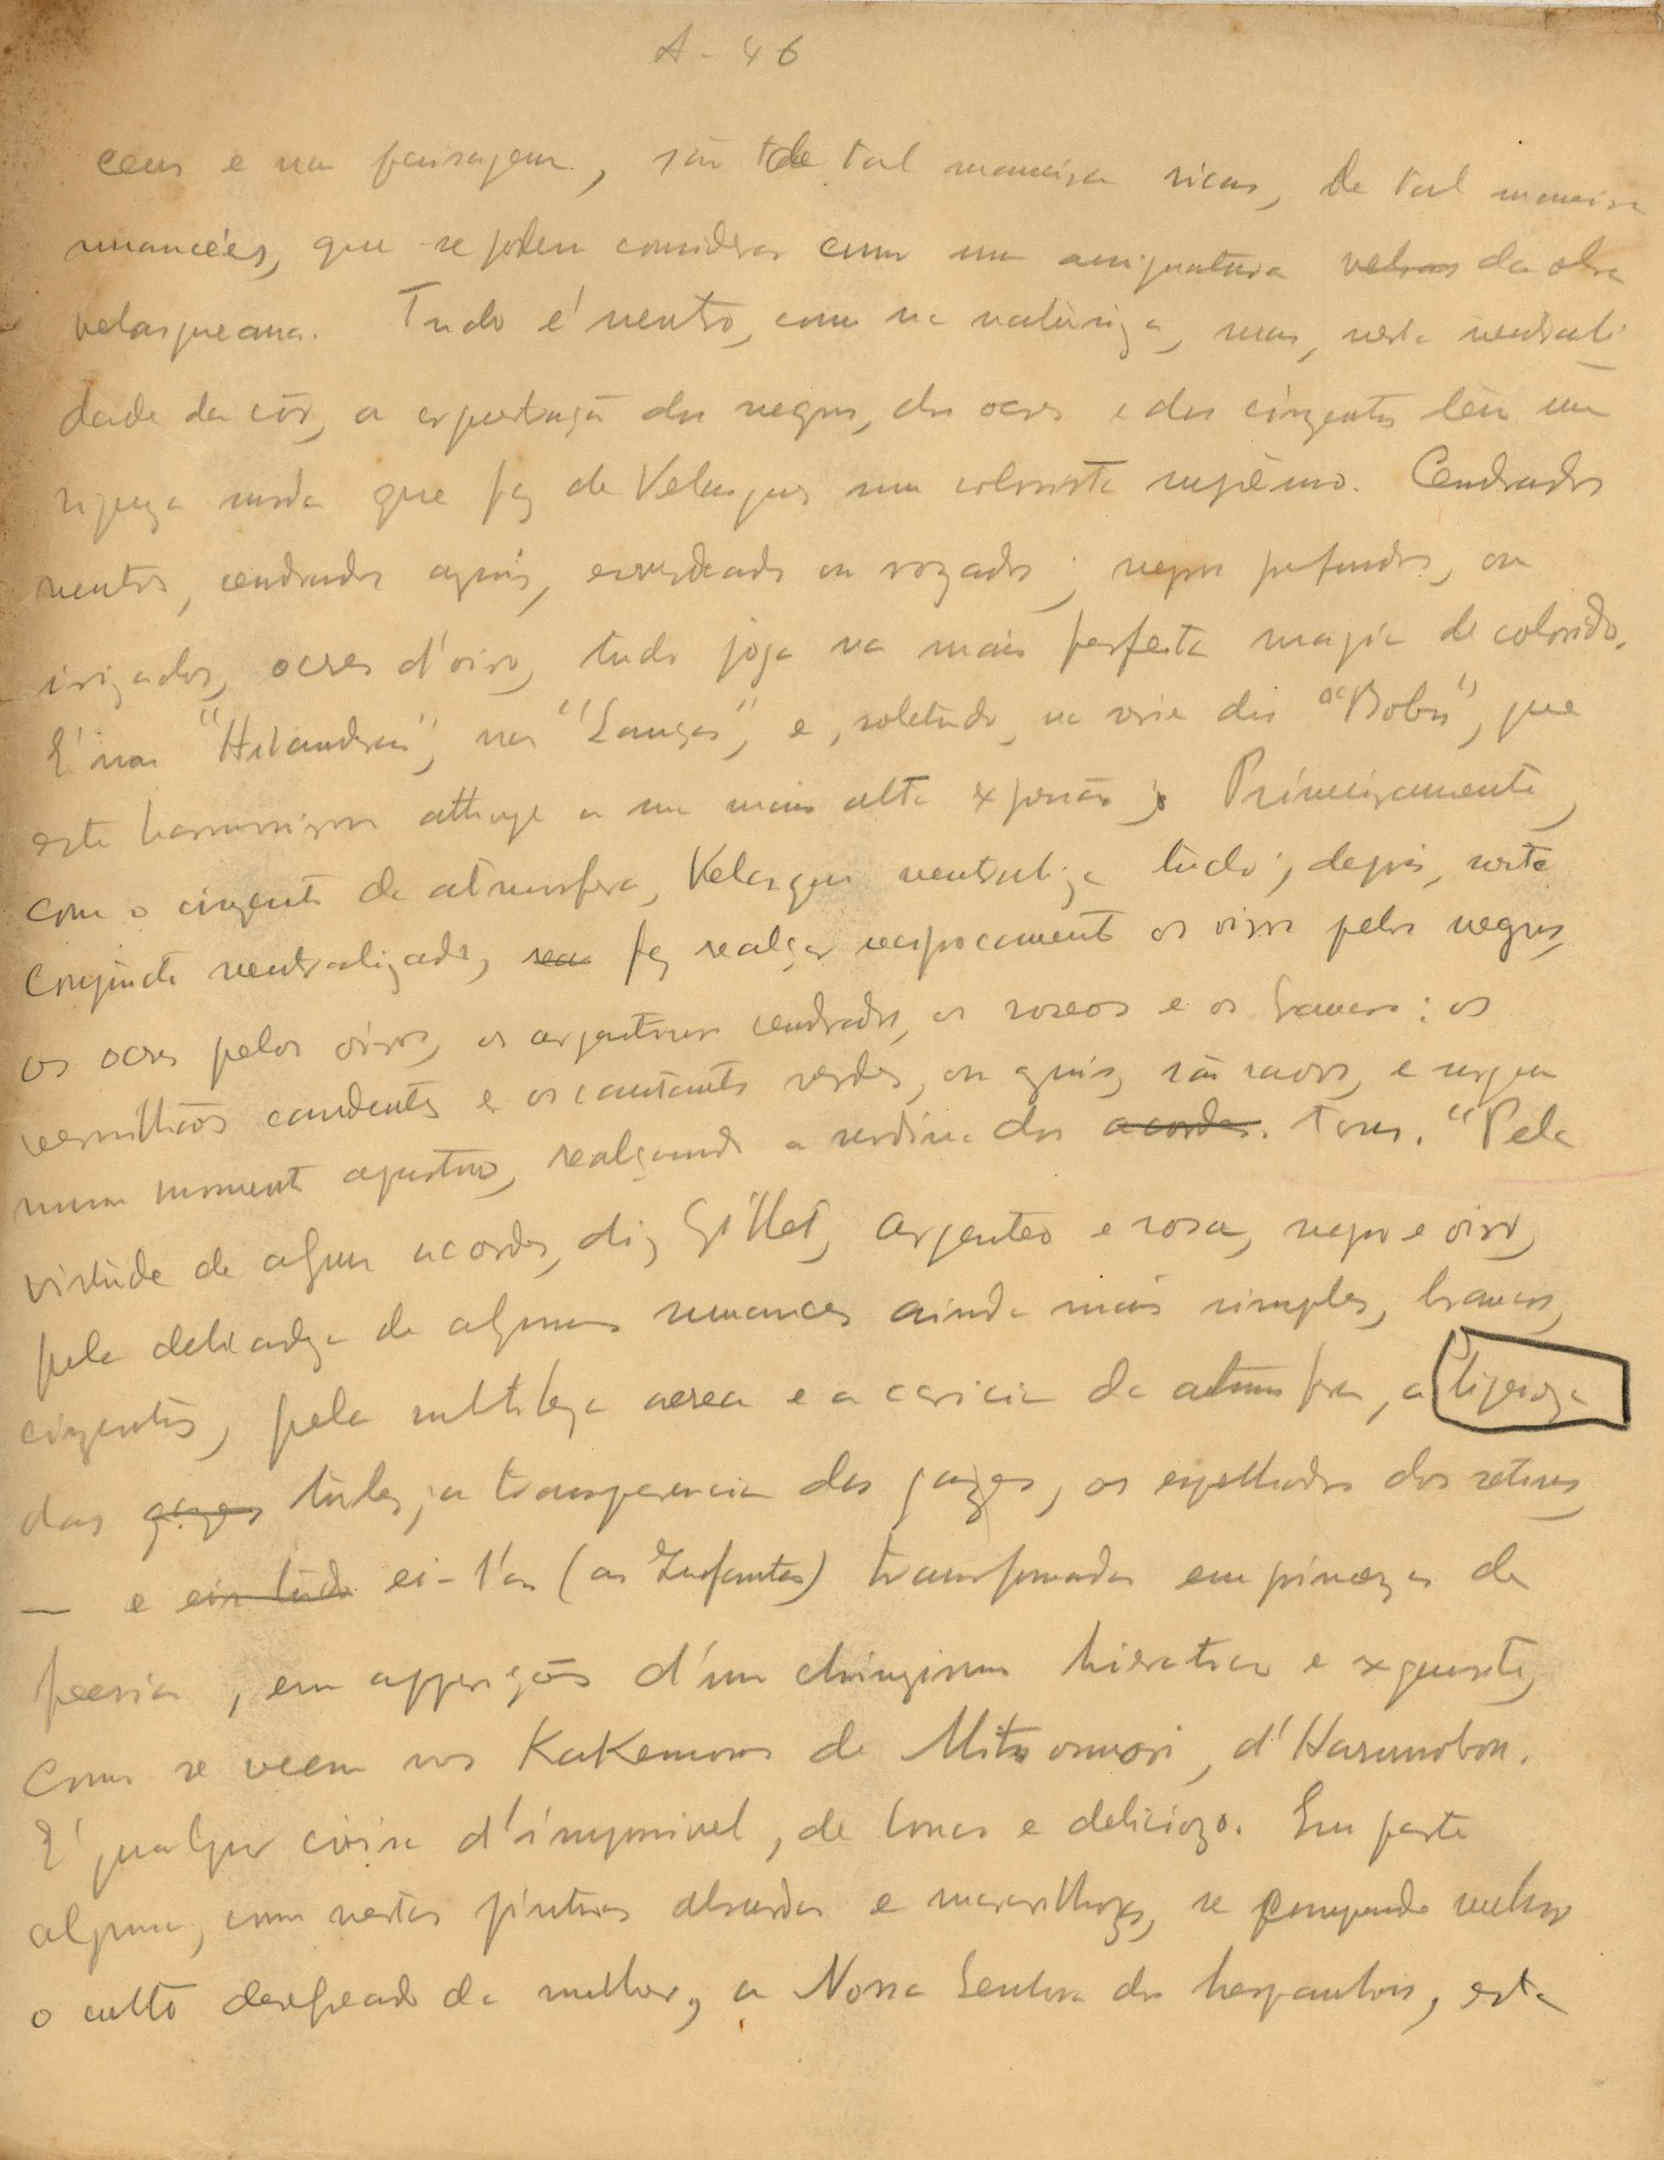 A-46
ceus e na paisagem, são de tal maneira ricas, de tal maneira
nuancées, que se podem considerar como uma assignatura velas da obra
velasqueana. Tudo é neutro, como na natureza, mas, nesta neutrali-
dade da côr, a orquestração dos negros, dos ocres e dos cinzentos tem uma
riqueza surda que fez de Velasquez um colorista supremo. Cendrados
neutros, cendrados azues, esverdeados ou rozados; negros profundos, ou
irizados, ocres d'oiro, tudo joga na mais perfeita magia de colorido.
É nas "Hilanderas", nas "Lanças", e, sobretudo, na serie dos "Bobos", que
este harmonismo attinge a sua mais alta expressão. Primeiramente,
com o cinzento da atmosfera, Velasquez neutraliza tudo; depois, neste
conjuncto neutralizado, faz realçar reciprocamente os oiros pelos negros,
os ocres pelos oiros, os argentinos cendrados, os roseos e os brancos: os
vermilhões candentes e os cantantes verdes, ou azues, são raros, e surgem
num momento oportuno, realçando a surdina dos acordes. tons. "Pela
virtude de alguns acordes, diz Gillet, argenteo e rosa, negro e oiro,
pela delicadeza de algumas nuances ainda mais simples, brancos,
cinzentos, pela subtileza aerea e a caricia da atmosfera, a ligeireza
das gazes tules, a transparencia das gazes, os espelhados dos setins,
— e eis tudo ei-l'as (as Infantas) transformadas em princezas de
feeria, em apparições d'um chinezismo hieratico e exquesito,
como se veem nos Kakemonos de Mitsonoori, d'Harunobou.
É qualquer coisa d'impossivel, de louco e delicioso. Em parte
alguma, como nestas pinturas absurdas e maravilhozas, se compreende melhor
o culto desesperado da mulher, a Nossa Senhora dos hespanhois, esta